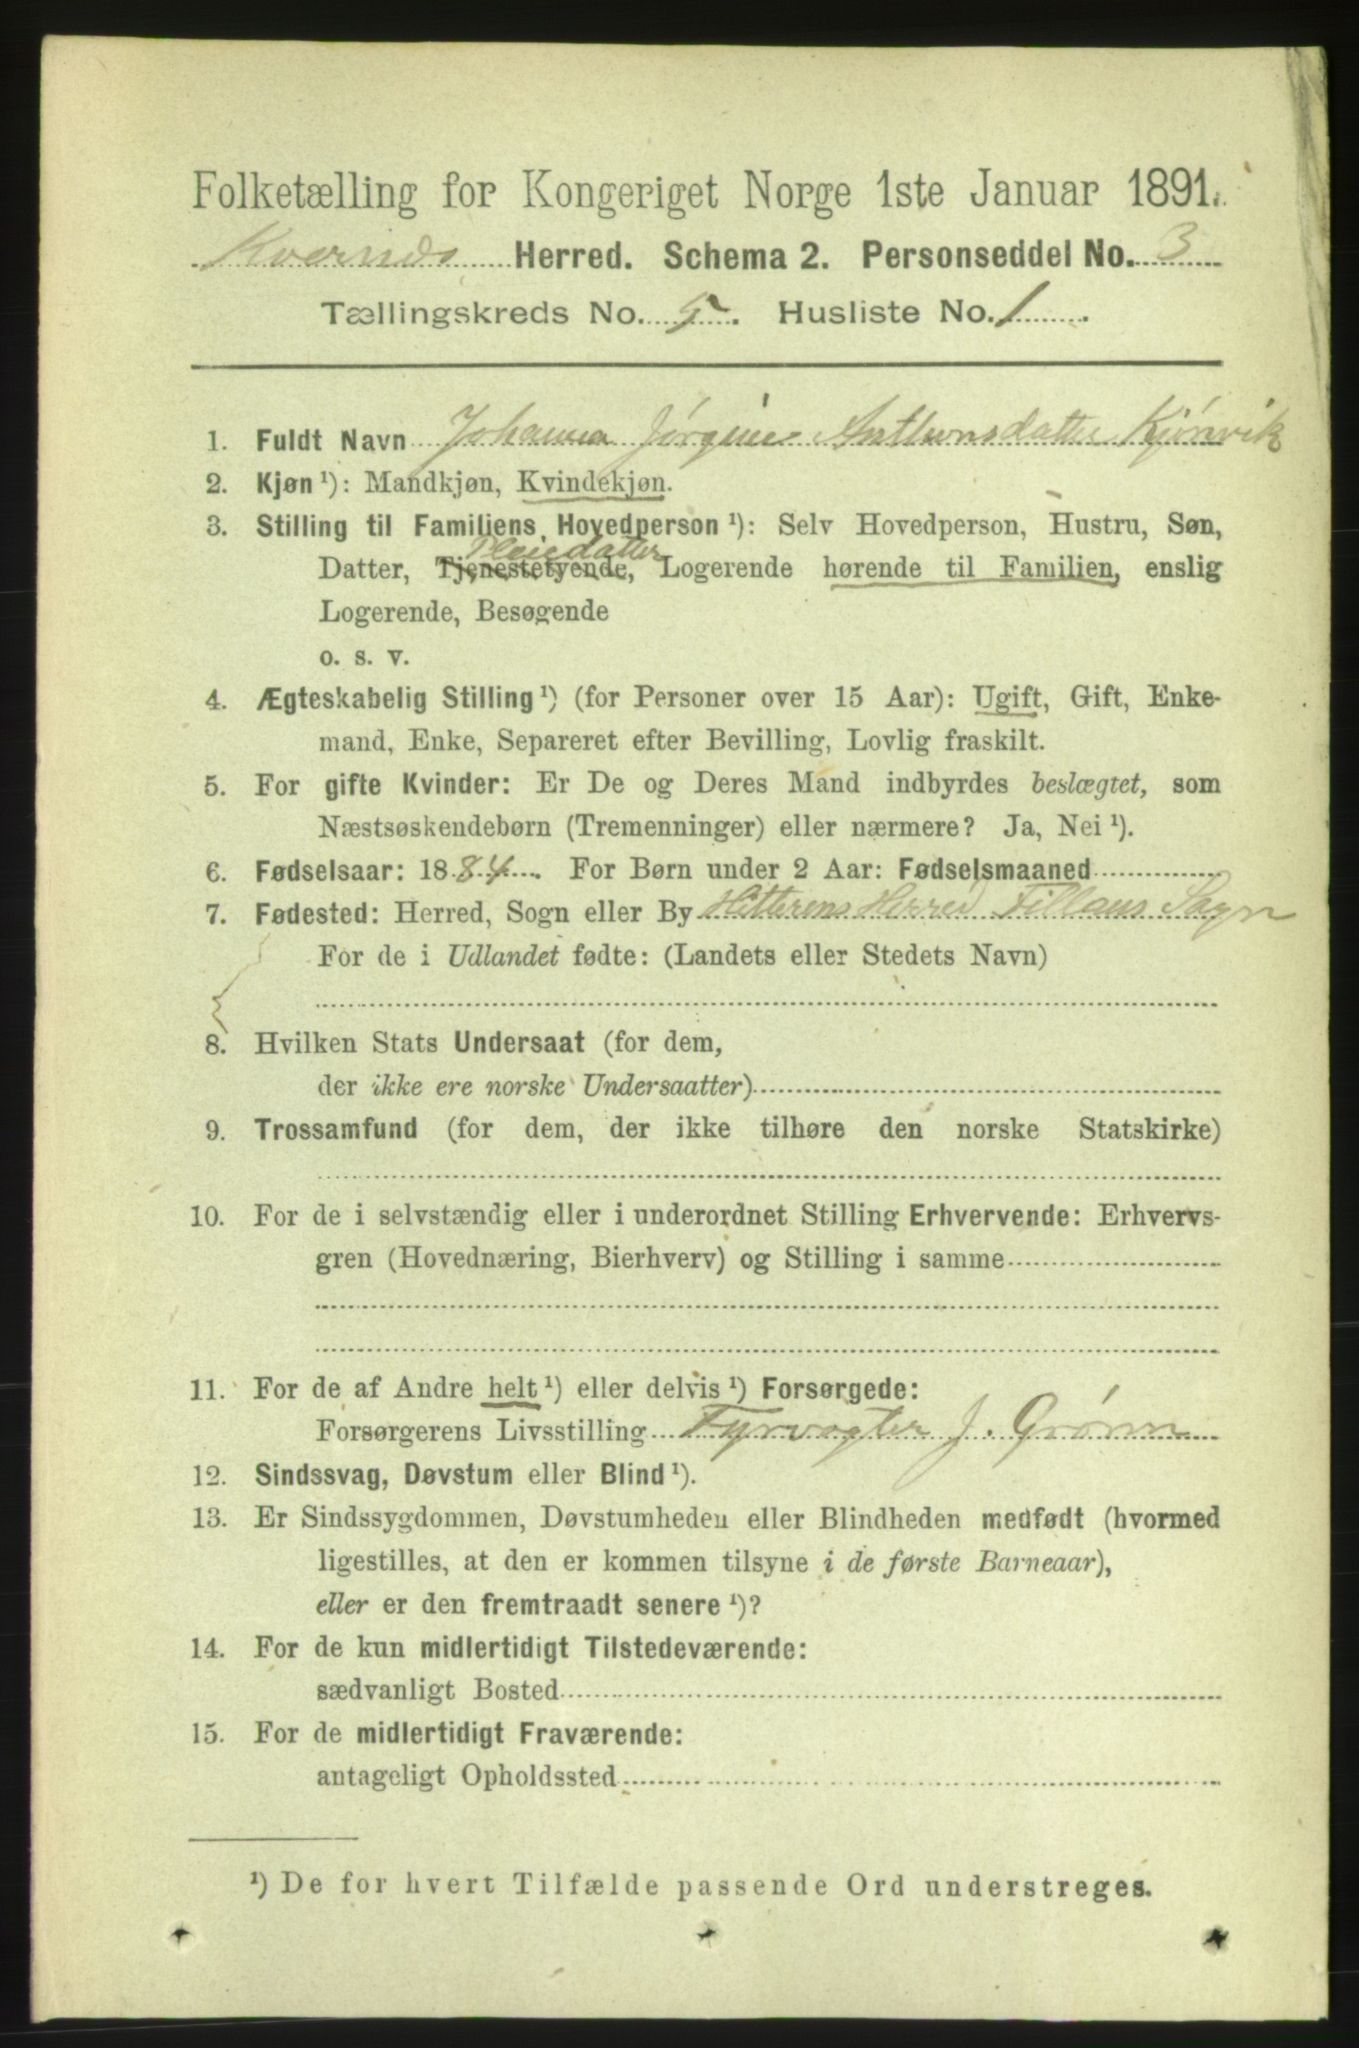 Folketælling for Kongeriget Norge 1ste Januar 1891.
Kvernes Herred. Schema 2. Personseddel No. 3
Tællingskreds No. 5. Husliste No. 1.
1. Fuldt Navn Johanna Jørgine Anthonsdatter Kjørvik
2. Kjøn ¹): Mandkjøn, Kvindekjøn.
Pleiedatter
3. Stilling til Familiens Hovedperson ¹): Selv Hovedperson, Hustru, Søn,
Datter, Tjenestetyende, Logerende hørende til Familien, enslig
Logerende, Besøgende
o. s. v.
4. Ægteskabelig Stilling ¹) (for Personer over 15 Aar): Ugift, Gift, Enke-
mand, Enke, Separeret efter Bevilling, Lovlig fraskilt.
5. For gifte Kvinder: Er De og Deres Mand indbyrdes beslægtet, som
Næstsøskendebørn (Tremenninger) eller nærmere? Ja, Nei ¹).
6. Fødselsaar: 1884. For Børn under 2 Aar: Fødselsmaaned
7. Fødested: Herred, Sogn eller By Hitterens Herred Fillans Sogn
For de i Udlandet fødte: (Landets eller Stedets Navn)
8. Hvilken Stats Undersaat (for dem,
der ikke ere norske Undersaatter)
9. Trossamfund (for dem, der ikke tilhøre den norske Statskirke)
10. For de i selvstændig eller i underordnet Stilling Erhvervende: Erhvervs-
gren (Hovednæring, Bierhverv) og Stilling i samme
11. For de af Andre helt ¹) eller delvis ¹) Forsørgede:
Forsørgerens Livsstilling Fyrvogter J. Grønn
12. Sindssvag, Døvstum eller Blind ¹).
13. Er Sindssygdommen, Døvstumheden eller Blindheden medfødt (hvormed
ligestilles, at den er kommen tilsyne i de første Barneaar),
eller er den fremtraadt senere ¹)?
14. For de kun midlertidigt Tilstedeværende:
sædvanligt Bosted
15. For de midlertidigt Fraværende:
antageligt Opholdssted
¹) De for hvert Tilfælde passende Ord understreges.